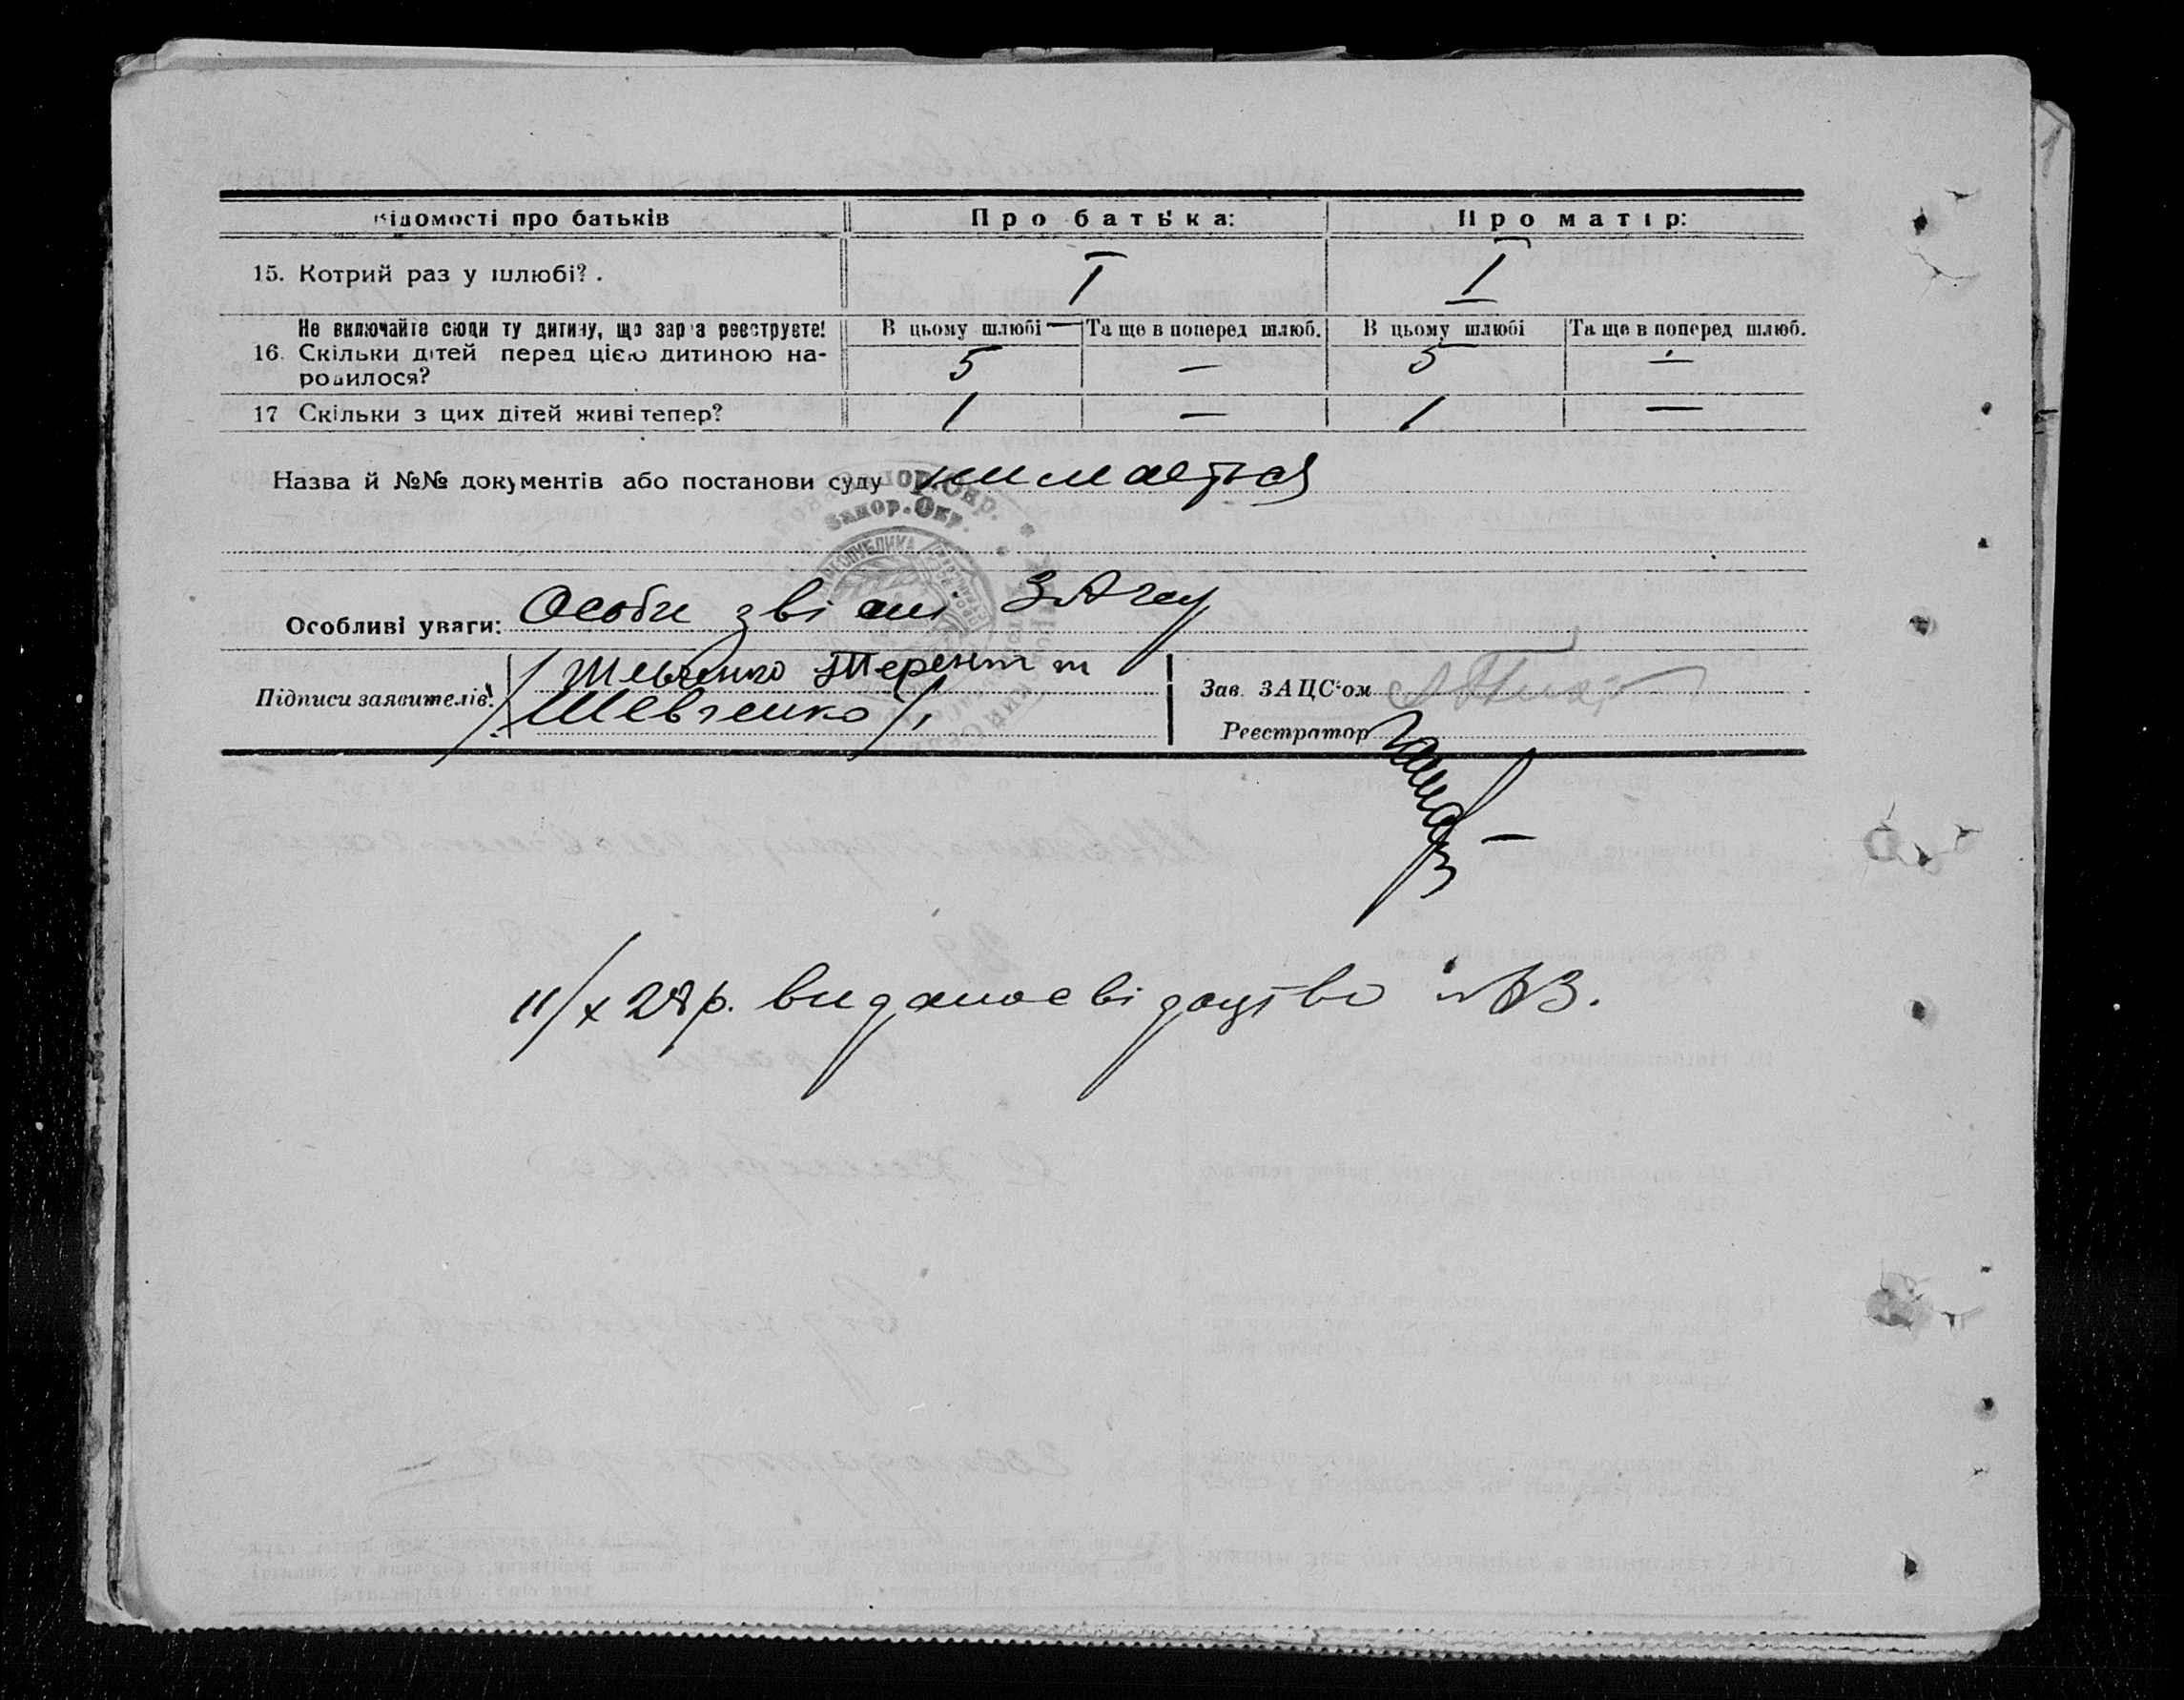 Відомості про батьків Про батька: Про матір:
15. Котрий раз у шлюбі? . I I
Не включайте сюди ту дитину, що зараз реєструєте! В цьому шлюбі — Та ще в поперед шлюб. В цьому шлюбі Та ще в поперед шлюб.
16. Скільки дітей перед цією дитиною на- 5 — 5 —
родилося?
17 Скільки з цих дітей живі тепер? 1 — 1 —
Назва й №№ документів або постанови суду
Запор. Окр.
РЕСПУБЛИКА
Особливі уваги: Особи звісні ЗАгсу
Підписи заявителів: Шевченко Терент
Шевченко
Зав. ЗАЦС'ом
Реєстратор
11/X 28 р. видано свідоцтво №